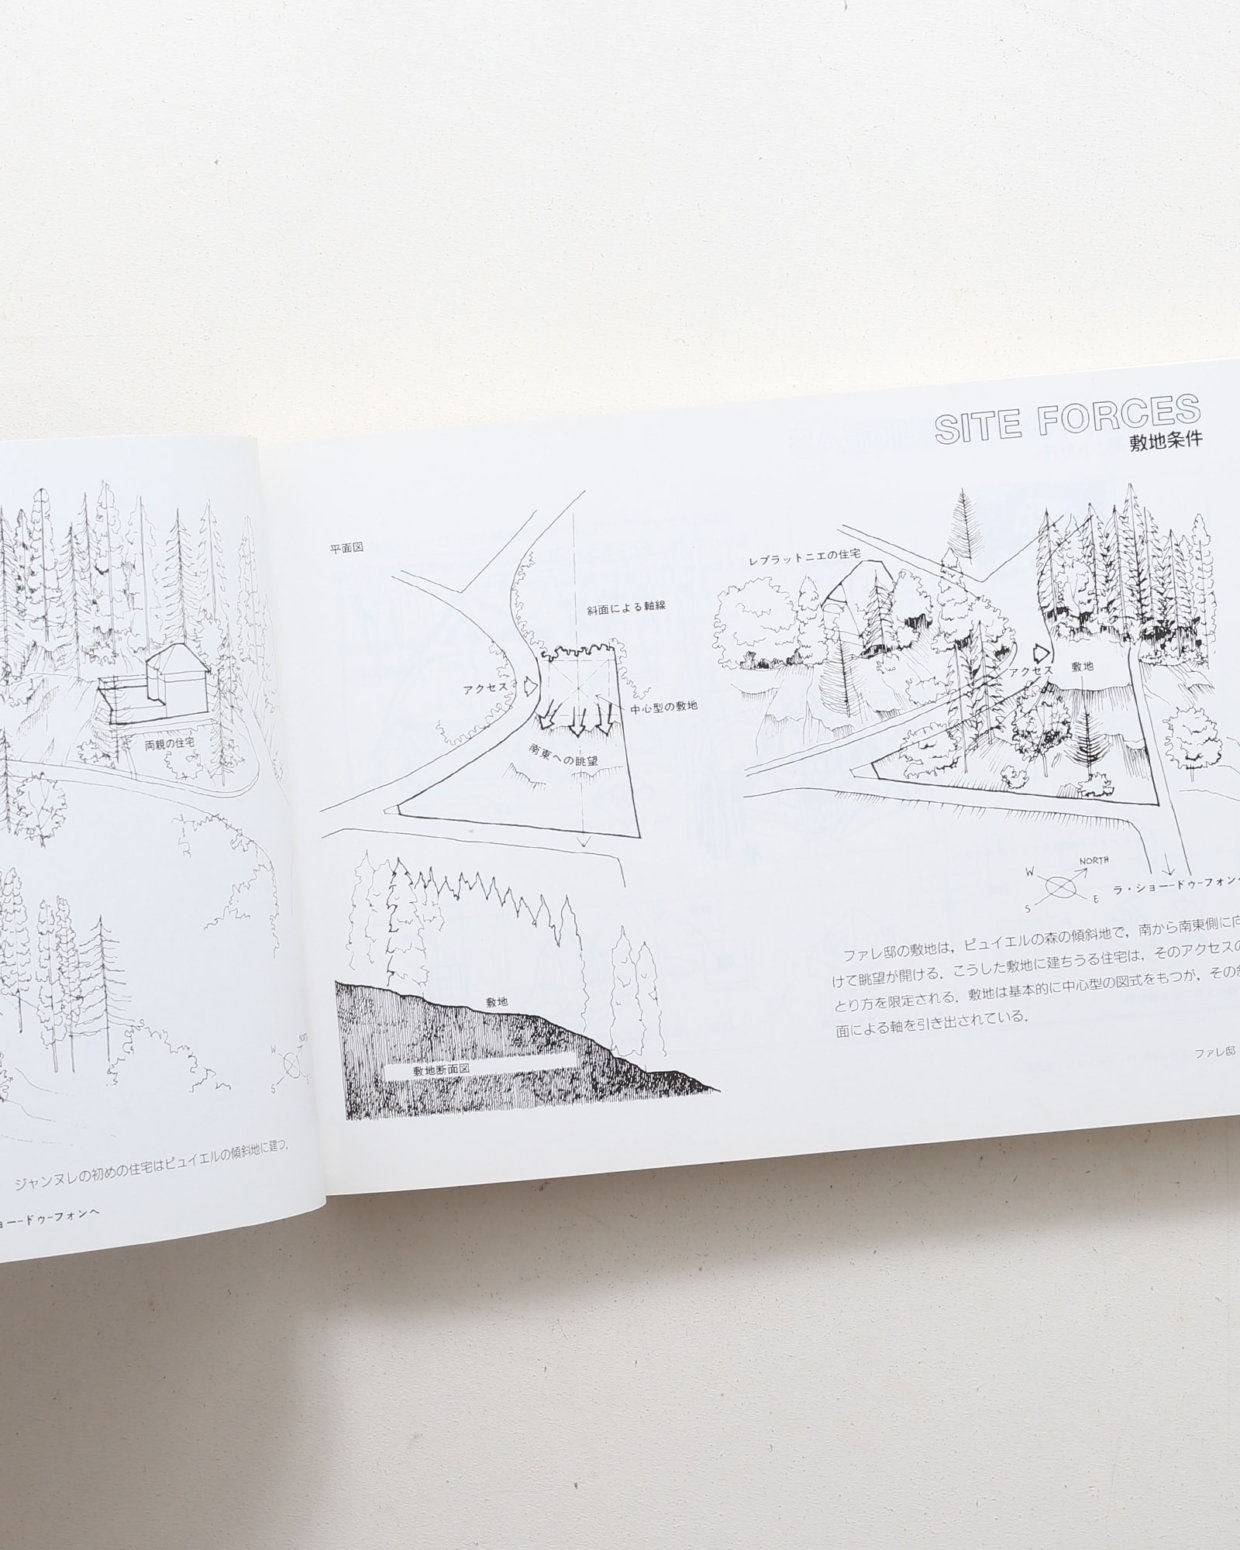 両親の住宅
N
W
S
ジャンヌレの初めの住宅はピュイエルの傾斜地に建つ.
ョー-ドゥ-フォンへ
SITE FORCES
敷地条件
平面図
斜面による軸線
アクセス
中心型の敷地
南東への眺望
敷地
敷地断面図
レプラットニエの住宅
アクセス
敷地
NORTH
W
E
S
ラ・ショー-ドゥ-フォンへ
ファレ邸の敷地は, ピュイエルの森の傾斜地で, 南から南東側に向
けて眺望が開ける. こうした敷地に建ちうる住宅は, そのアクセスの
とり方を限定される. 敷地は基本的に中心型の図式をもつが, その斜
面による軸を引き出されている.
ファレ邸